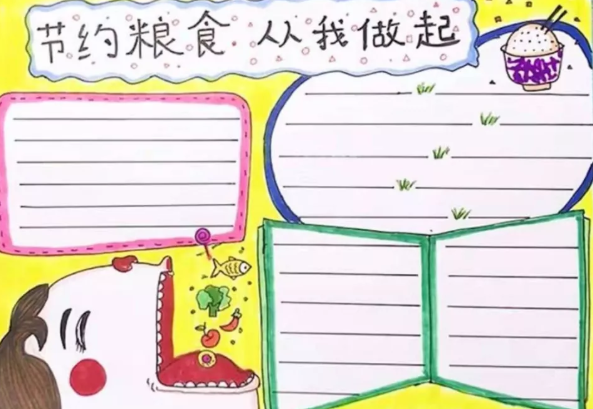 节约粮食 从我做起